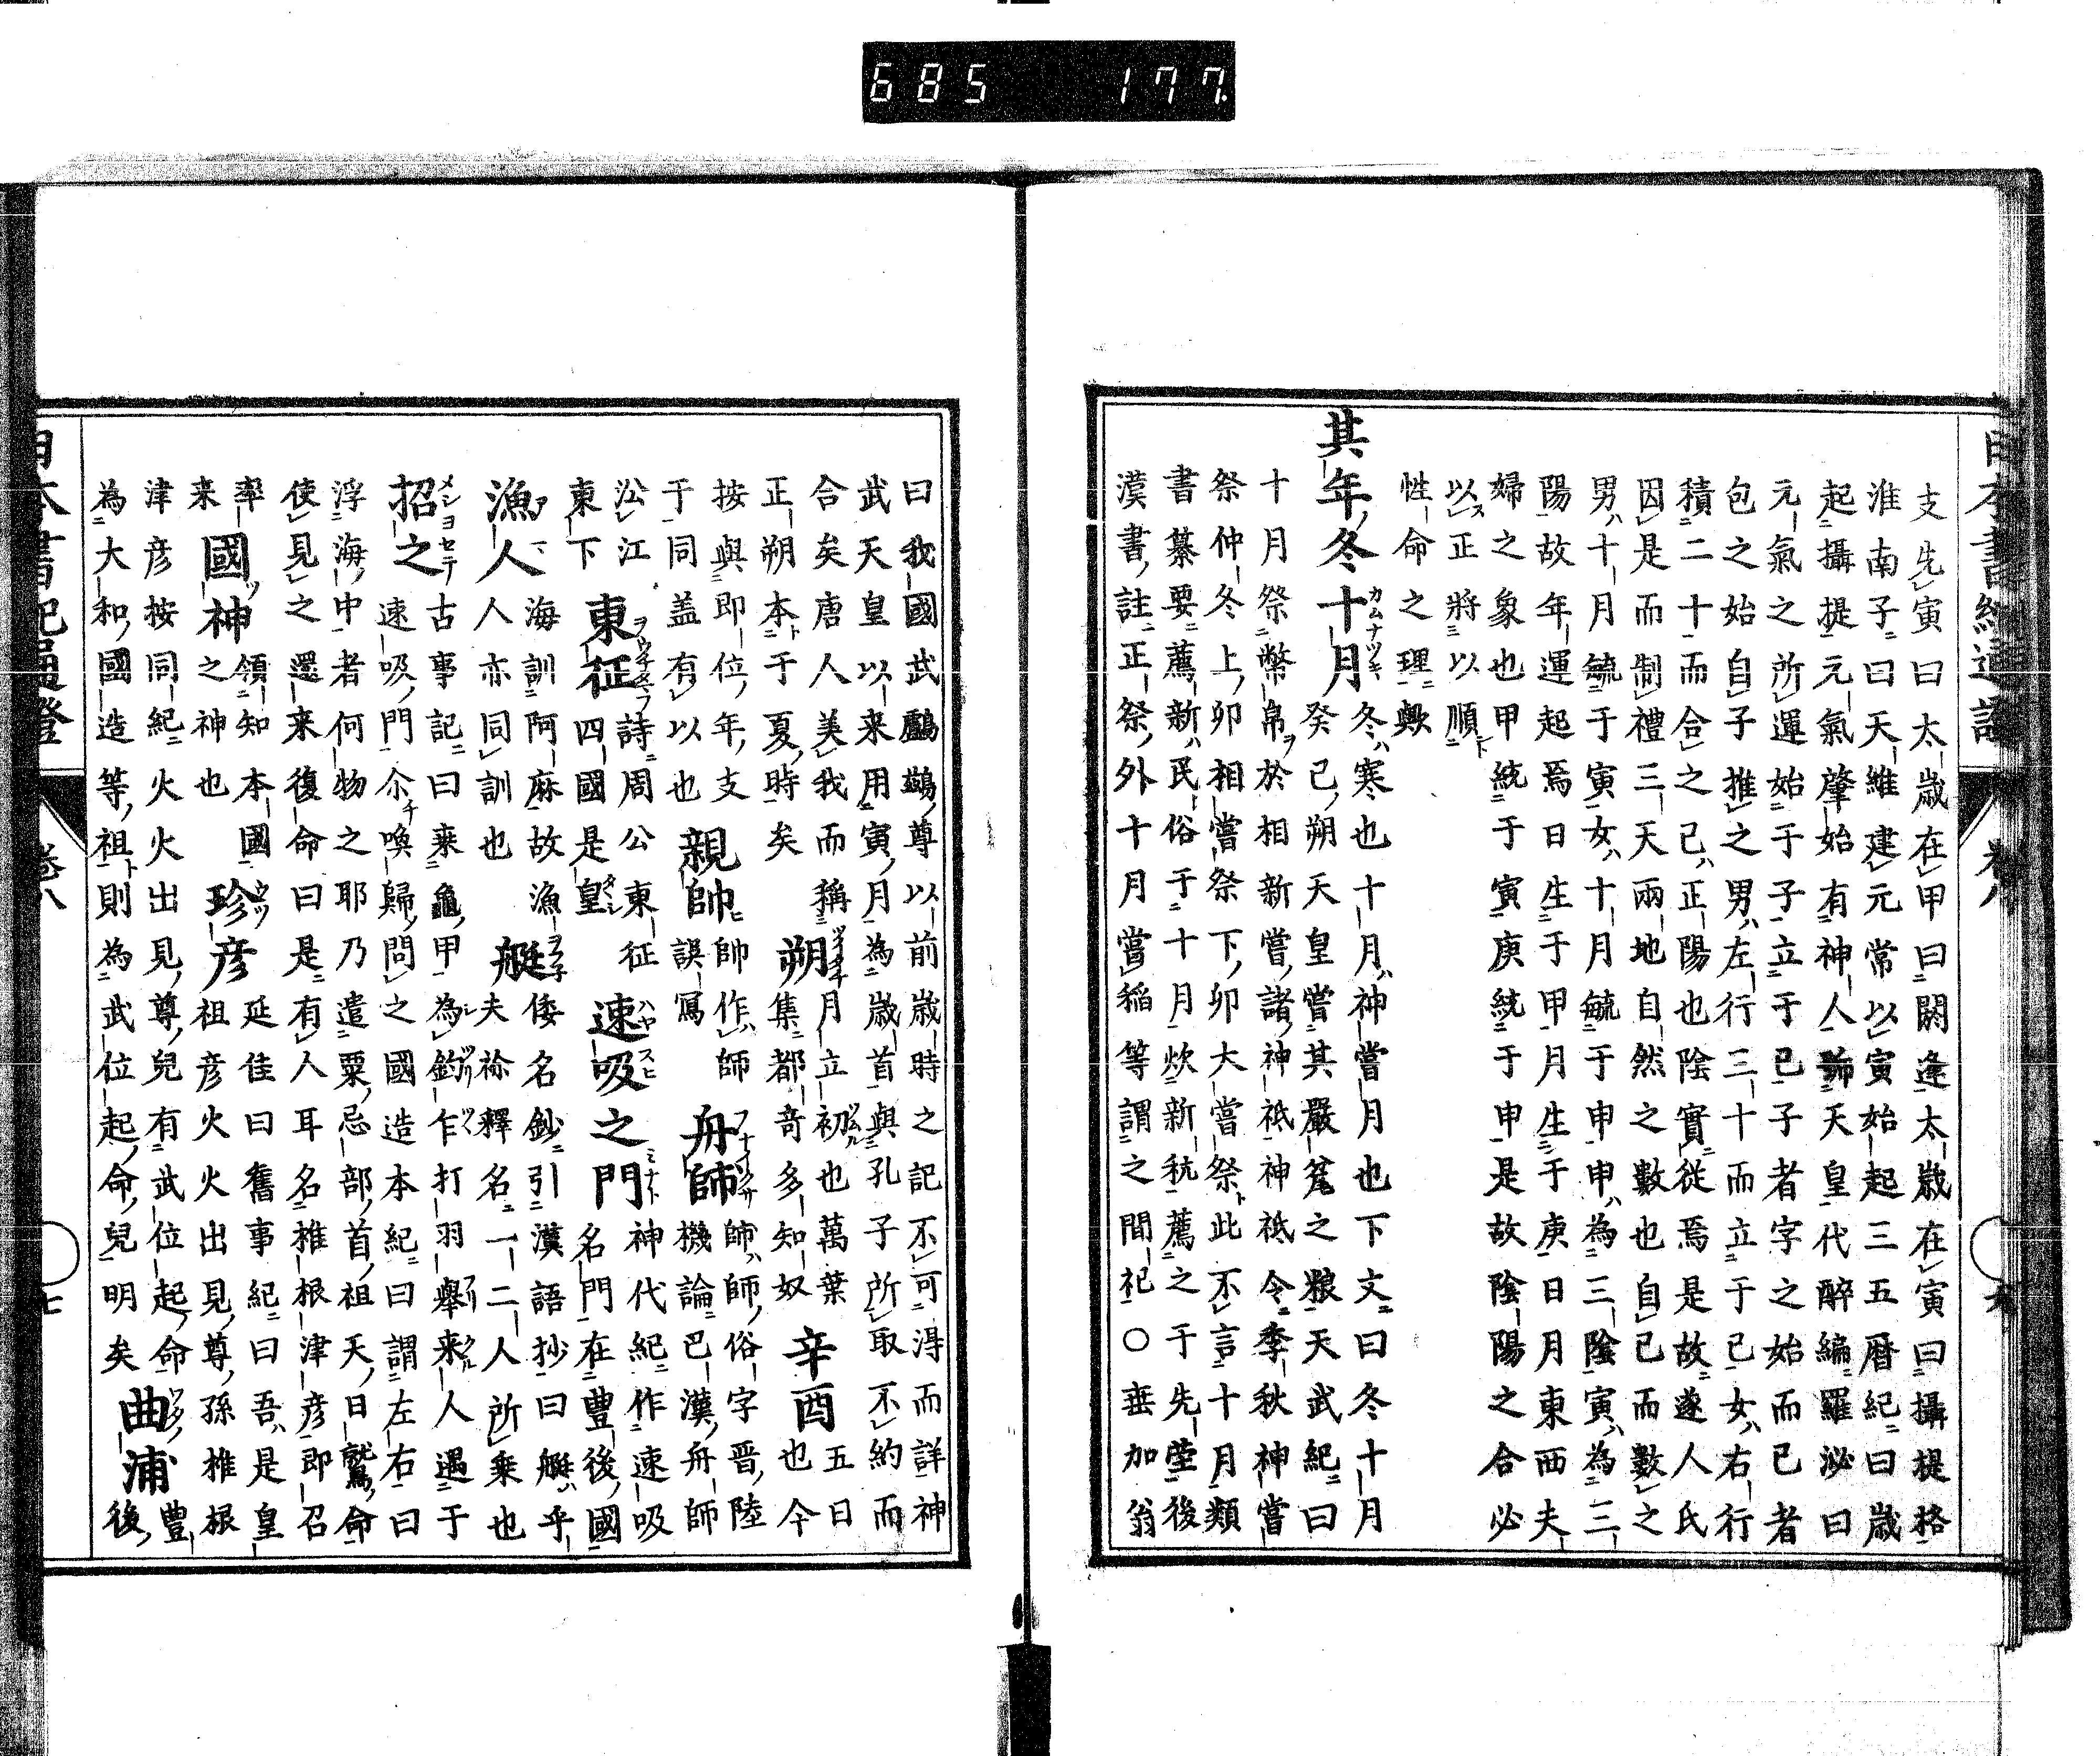 685 177.
支先寅曰太歳在甲曰閼逢太歳在寅曰攝提格
淮南子曰天維建元常以寅始起三五暦紀曰歳
起攝提元氣肇始有神人號天皇代醉編羅泌曰
元氣之所運始于子立于巳子者字之始而已者
包之始自子推之男左行三十而立于巳女右行
積二十而合之巳正陽也陰實従焉是故遂人氏
因是而制禮三天兩地自然之數也自巳而數之
男ハ十月毓于寅女ハ十月毓于申申ハ為三陰寅ハ為三
陽故年運起焉日生于甲月生于庚日月東西夫
婦之象也甲統于寅庚統于申是故陰陽之合必
以正將以順
性命之理歟
其年冬十月カムナヅキ冬ハ寒也十月ハ神嘗月也下文曰冬十月
癸巳朔天皇嘗其嚴瓮之粮天武紀曰
十月祭幣帛ヲ於相新嘗諸神祇神祇令季秋神嘗
祭仲冬上卯相嘗祭下卯大嘗祭ト此不言十月類
書纂要薦新ハ民俗于十月炊新秔薦之于先塋後
漢書註正祭外十月嘗稲等謂之間祀〇垂加翁
日本書紀通證
卷八
曰我國武鸕鷀尊以前歳時之記不可得而詳神
武天皇以来用寅月為歳首與孔子所取不約而
合矣唐人美我而稱
正朔本于夏時矣
朔月立初也萬葉集都奇多知奴
辛酉五日也今
按與即位年支
于同盖有以也
親帥帥作師誤寫
舟師フナイクサ師ハ師俗字晋陸機論巳漢舟師
沿江
東下
東征詩周公東征四國是皇
速吸之門ハヤスヒミナト神代紀作速吸名門在豊後國
漁人海訓阿麻故漁人亦同訓也
艇倭名鈔引漢語抄曰艇ハ乎夫祢釋名一二人所乗也
招之メシヨセテ古事記曰乗龜甲為釣乍打羽擧来人遇于速吸門尒チ喚歸問之國造本紀曰謂左右曰
浮海中者何物之耶乃遣粟忌部首祖天日鷲命
使見之還来復命曰是有人耳名椎根津彦即召
率来
國神領知本國之神也
珍彦延佳曰舊事紀曰吾是皇祖彦火火出見尊孫椎根
津彦按同紀火火出見尊兒有武位起命豊
為大和國造等祖ト則為武位起命兒明矣
曲浦後
日本書紀通證
卷八
七